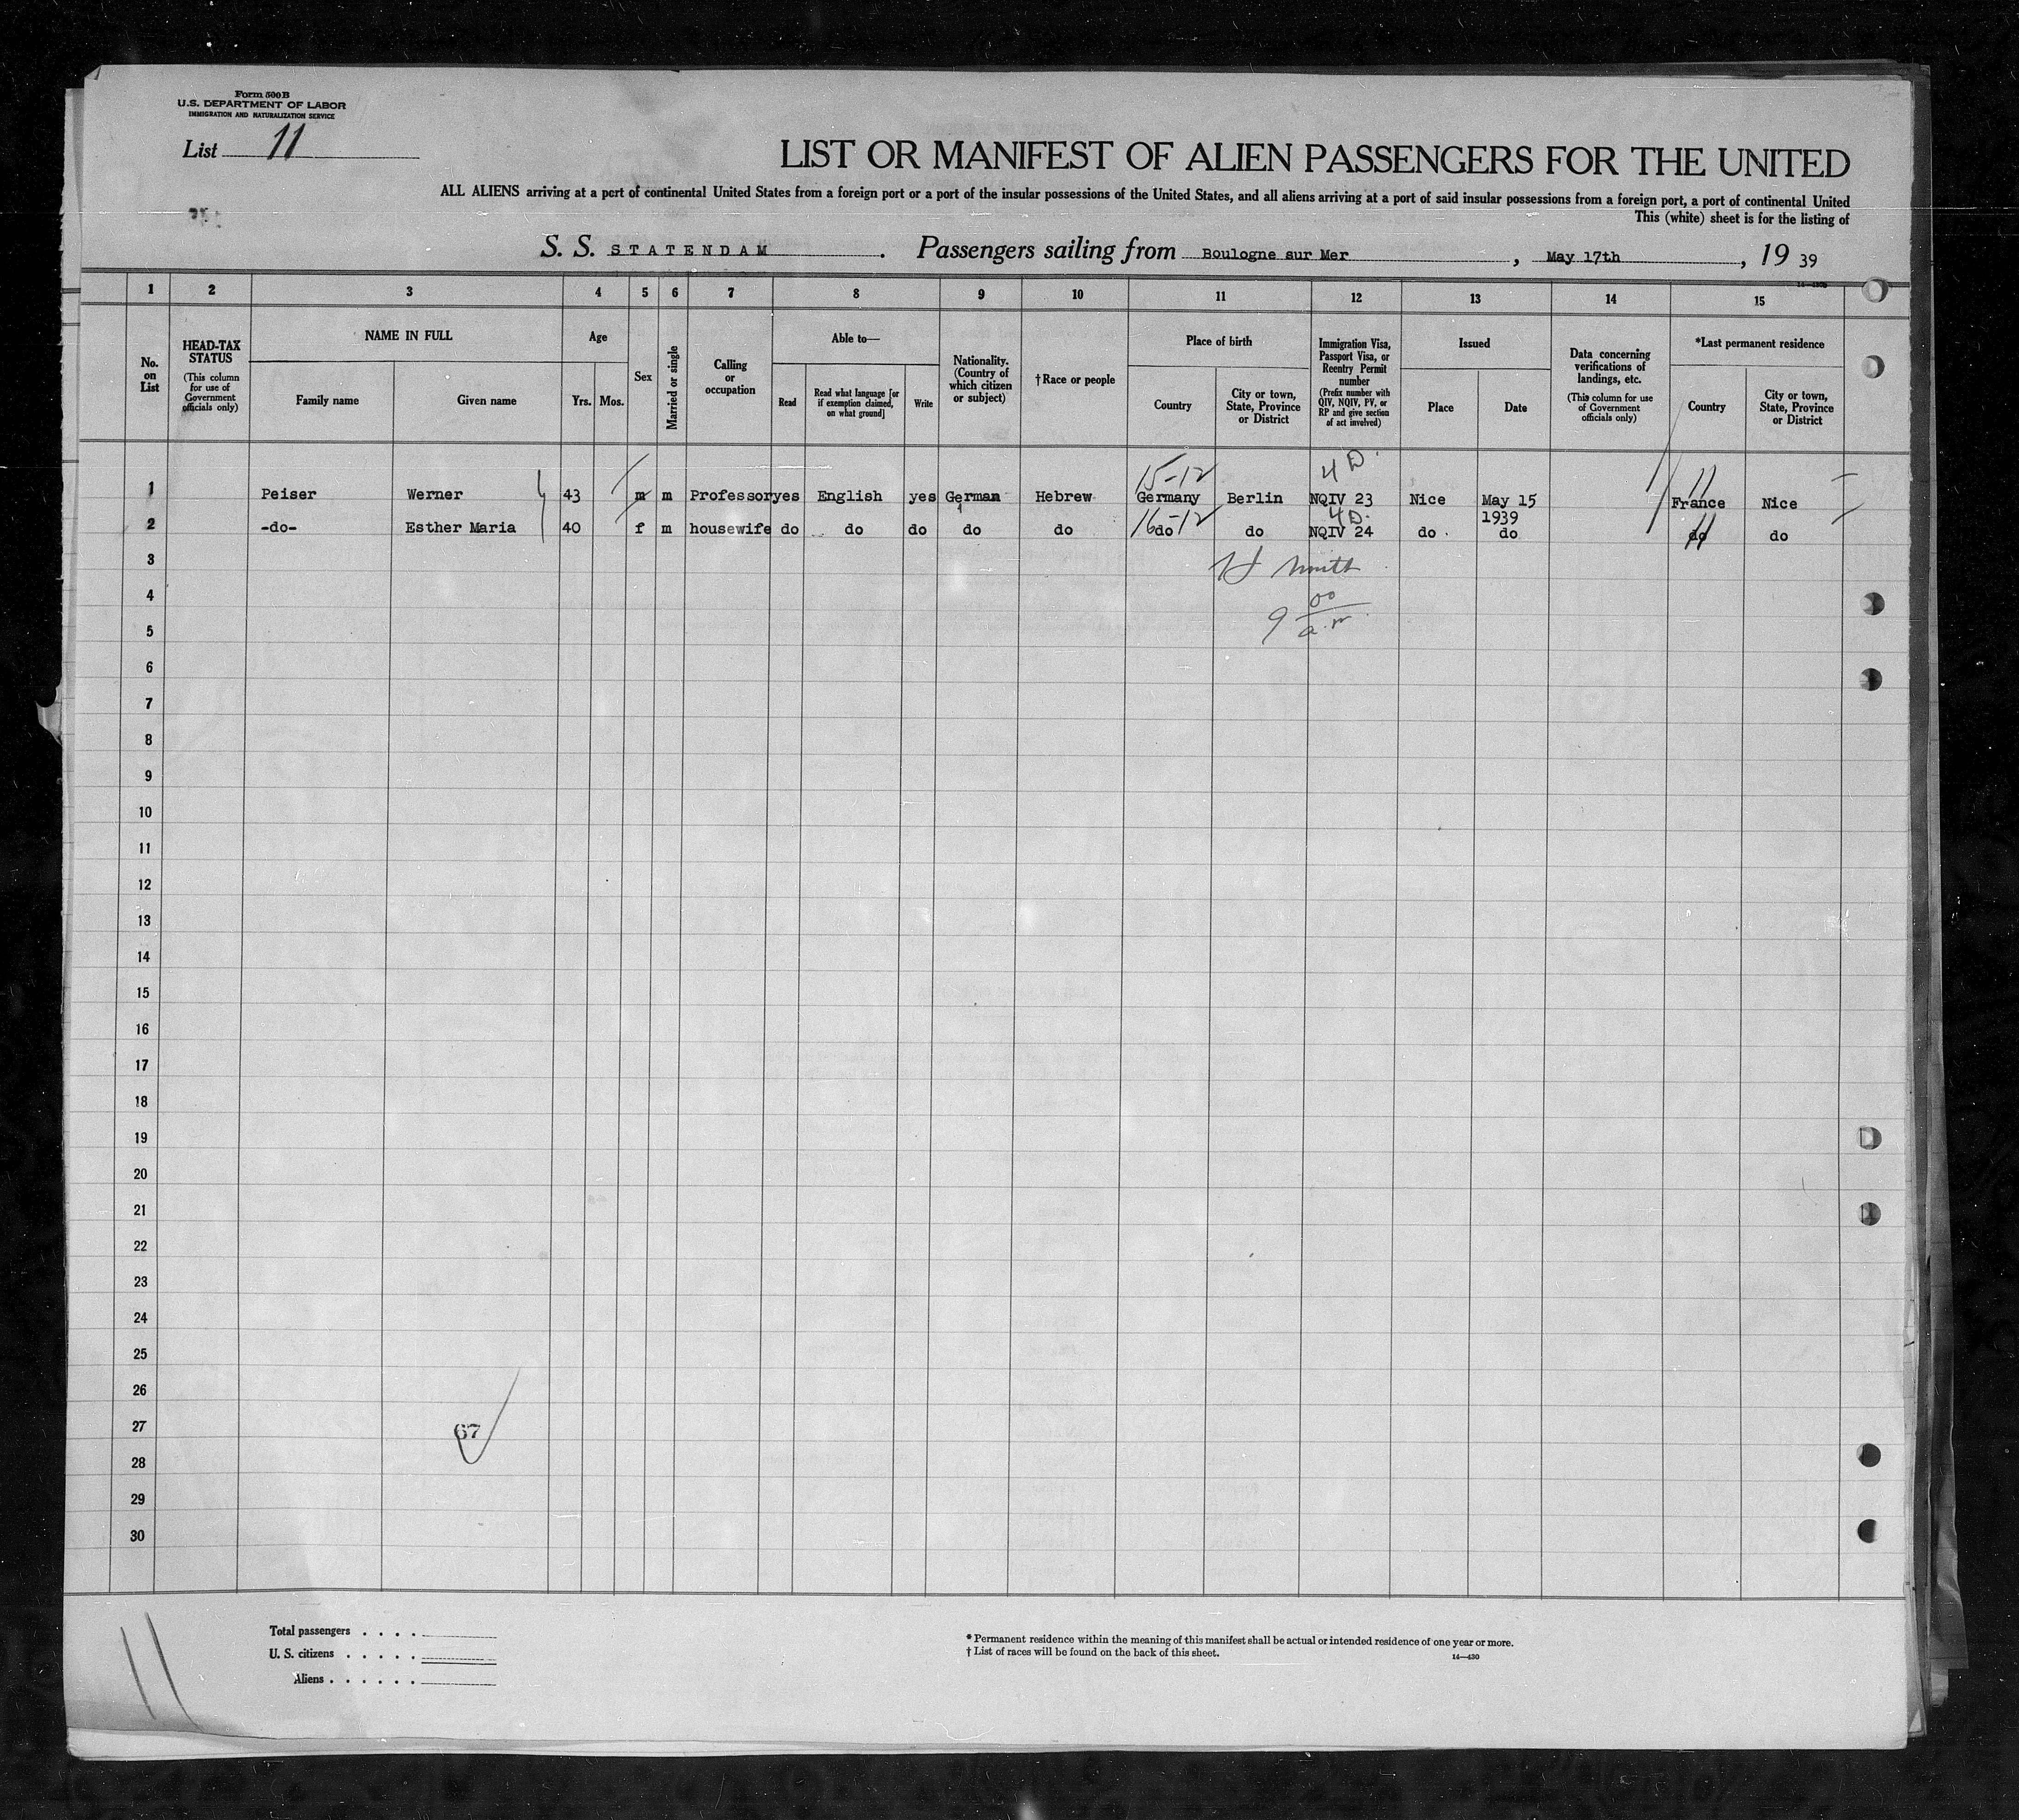 Form 500 B
U.S. DEPARTMENT OF LABOR
IMMIGRATION AND NATURALIZATION SERVICE
List 11
LIST OR MANIFEST OF ALIEN PASSENGERS FOR THE UNITED
ALL ALIENS arriving at a port of continental United States from a foreign port or a port of the insular possessions of the United States, and all aliens arriving at a port of said insular possessions from a foreign port, a port of continental United
This (white) sheet is for the listing of
S. S. STATENDAM . Passengers sailing from Boulogne sur Mer , May 17th , 19 39
1 2 3 4 5 6 7 8 9 10 11 12 13 14 15
No. on List
HEAD-TAX STATUS
(This column for use of Government officials only)
NAME IN FULL
Family name
Given name
Age
Yrs.
Mos.
Sex
Married or single
Calling or occupation
Able to—
Read
Read what language [or if exemption claimed, on what ground]
Write
Nationality. (Country of which citizen or subject)
† Race or people
Place of birth
Country
City or town, State, Province or District
Immigration Visa, Passport Visa, or Reentry Permit number
(Prefix number with QIV, NQIV, PV, or RP and give section of act involved)
Issued
Place
Date
Data concerning verifications of landings, etc.
(This column for use of Government officials only)
*Last permanent residence
Country
City or town, State, Province or District
15-12 4 D. 11
1 Peiser Werner 43 m m Professor yes English yes German Hebrew Germany Berlin NQIV 23 Nice May 15 France Nice
16-12 4 D. 1939 11
2 -do- Esther Maria 40 f m housewife do do do do do do do NQIV 24 do do do do
3
4
5
9 00 a.m
6
7
8
9
10
11
12
13
14
15
16
17
18
19
20
21
22
23
24
25
26
27 67
28
29
30
Total passengers . . . .
U. S. citizens . . . . .
Aliens . . . . . .
* Permanent residence within the meaning of this manifest shall be actual or intended residence of one year or more.
† List of races will be found on the back of this sheet.
14—430